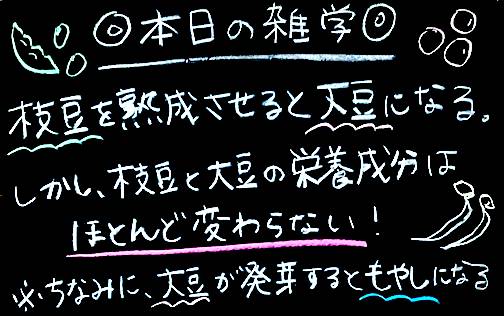 ◎本日の雑学◎
枝豆を熟成させると大豆になる。
しかし、枝豆と大豆の栄養成分は
ほとんど変わらない!
※ちなみに、大豆が発芽するともやしになる